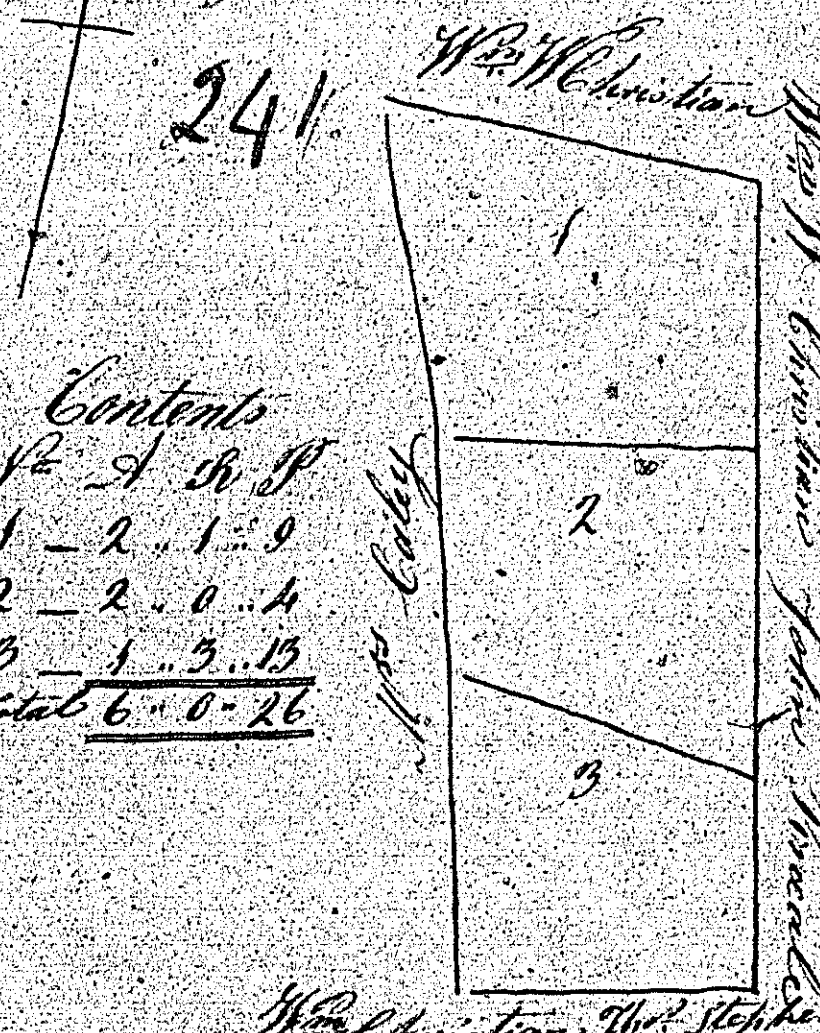 Wm W Christian
241.
1
Contents
A R P
1 — 2 .. 1 .. 9
2 — 2 .. 0 .. 4
3 — 1 .. 3 .. 13
total 6 .. 0 .. 26
2
3
Mrs Caley
Wm W Christian John
Wm Christian Thos Stephe